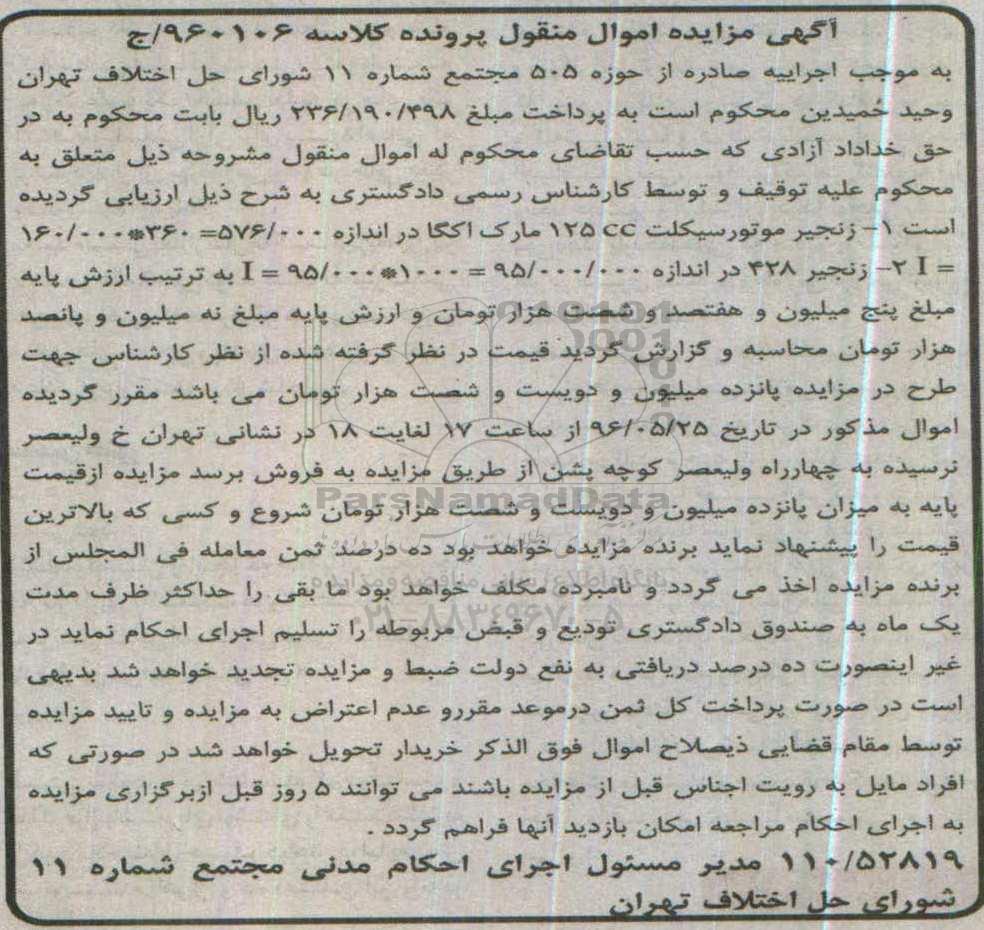 آگهی مزایده اموال منقول پرونده کلاسه ۹۶۰۱۰۶/ج
به موجب اجراییه صادره از حوزه ۵۰۵ مجتمع شماره ۱۱ شورای حل اختلاف تهران
وحید حُمیدین محکوم است به پرداخت مبلغ ۲۳۶/۱۹۰/۴۹۸ ریال بابت محکوم به در
حق خداداد آزادی که حسب تقاضای محکوم له اموال منقول مشروحه ذیل متعلق به
محکوم علیه توقیف و توسط کارشناس رسمی دادگستری به شرح ذیل ارزیابی گردیده
است ۱- زنجیر موتورسیکلت ۱۲۵ cc مارک اکگا در اندازه ۵۷۶/۰۰۰= ۳۶۰*۱۶۰/۰۰۰
= I ۲- زنجیر ۴۲۸ در اندازه ۹۵/۰۰۰/۰۰۰ = ۱۰۰۰*۹۵/۰۰۰ = I به ترتیب ارزش پایه
مبلغ پنج میلیون و هفتصد و شصت هزار تومان و ارزش پایه مبلغ نه میلیون و پانصد
هزار تومان محاسبه و گزارش گردید قیمت در نظر گرفته شده از نظر کارشناس جهت
طرح در مزایده پانزده میلیون و دویست و شصت هزار تومان می باشد مقرر گردیده
اموال مذکور در تاریخ ۹۶/۰۵/۲۵ از ساعت ۱۷ لغایت ۱۸ در نشانی تهران خ ولیعصر
نرسیده به چهارراه ولیعصر کوچه پشن از طریق مزایده به فروش برسد مزایده ازقیمت
پایه به میزان پانزده میلیون و دویست و شصت هزار تومان شروع و کسی که بالاترین
قیمت را پیشنهاد نماید برنده مزایده خواهد بود ده درصد ثمن معامله فی المجلس از
برنده مزایده اخذ می گردد و نامبرده مکلف خواهد بود ما بقی را حداکثر ظرف مدت
یک ماه به صندوق دادگستری تودیع و قبض مربوطه را تسلیم اجرای احکام نماید در
غیر اینصورت ده درصد دریافتی به نفع دولت ضبط و مزایده تجدید خواهد شد بدیهی
است در صورت پرداخت کل ثمن درموعد مقررو عدم اعتراض به مزایده و تایید مزایده
توسط مقام قضایی ذیصلاح اموال فوق الذکر خریدار تحویل خواهد شد در صورتی که
افراد مایل به رویت اجناس قبل از مزایده باشند می توانند ۵ روز قبل ازبرگزاری مزایده
به اجرای احکام مراجعه امکان بازدید آنها فراهم گردد .
۱۱۰/۵۲۸۱۹ مدیر مسئول اجرای احکام مدنی مجتمع شماره ۱۱
شورای حل اختلاف تهران
ParsNamadData
۰۲۱-۸۸۳۴۹۶۷۰-۵